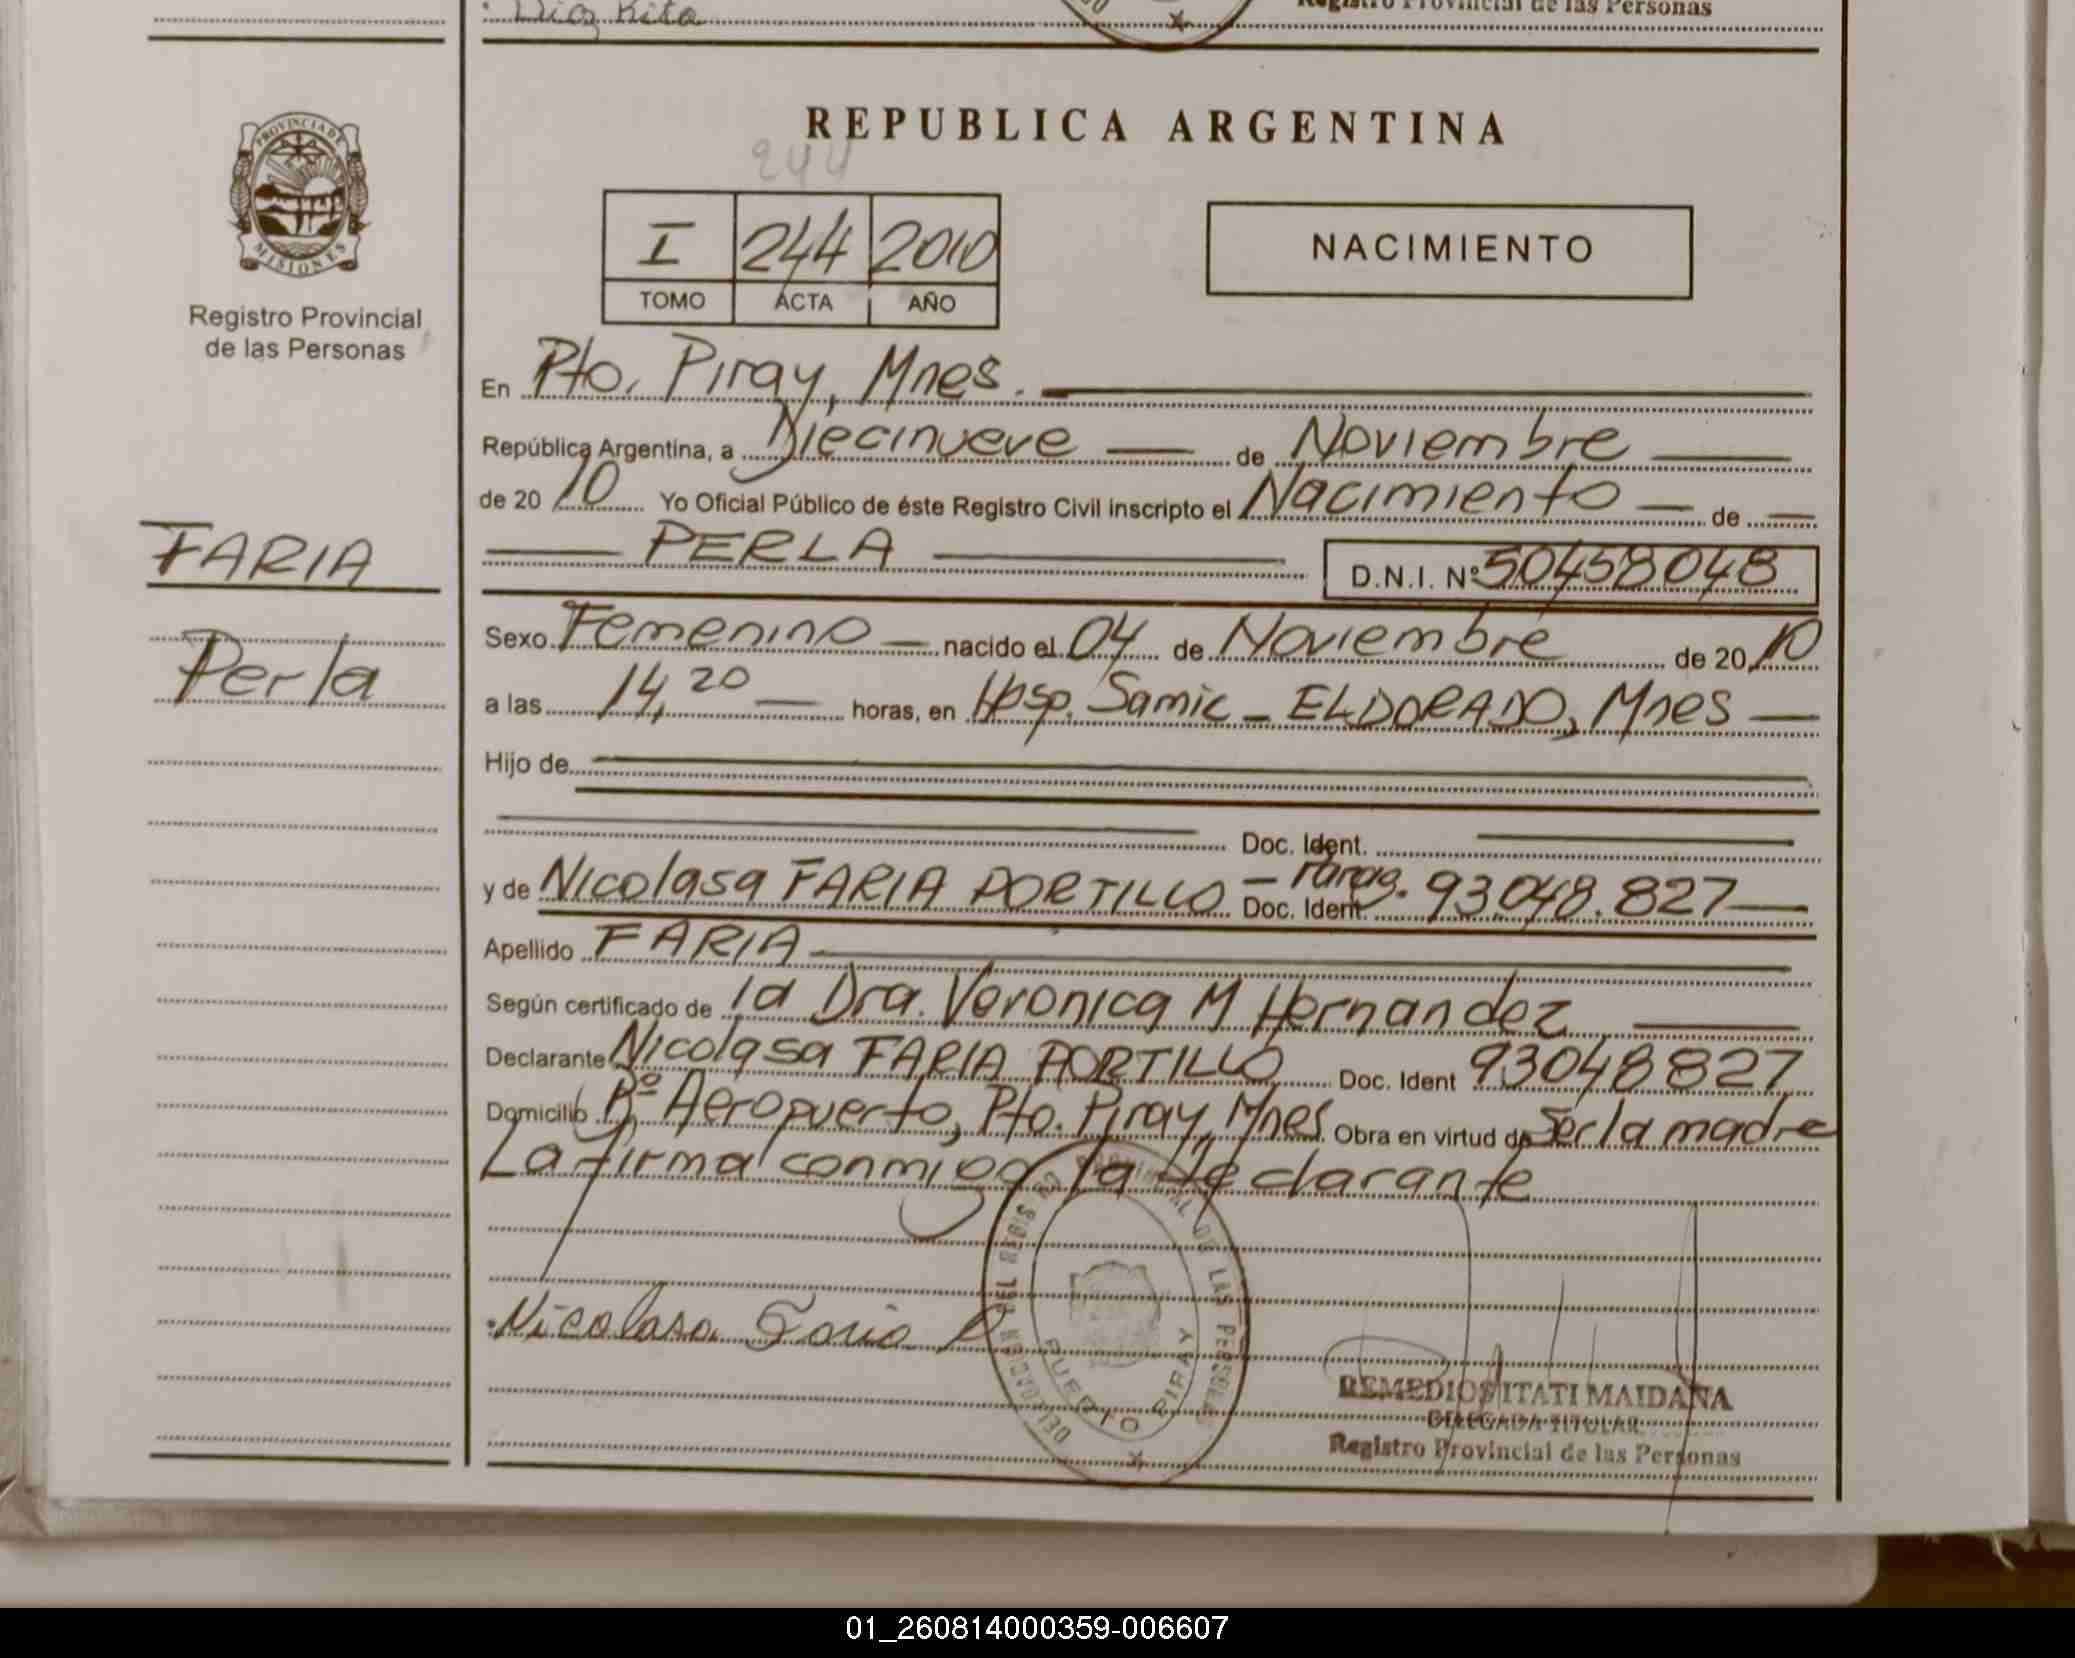 Diaz Rita
Registro Provincial de las Personas
PROVINCIA DE
MISIONES
Registro Provincial
de las Personas
FARIA
Perla
REPUBLICA ARGENTINA
244
I 244 2010
TOMO ACTA AÑO
NACIMIENTO
En Pto. Piray, Mnes.
República Argentina, a Diecinueve de Noviembre
de 2010 Yo Oficial Público de éste Registro Civil inscripto el Nacimiento de
PERLA D.N.I. Nº 50458048
Sexo Femenino nacido el 04 de Noviembre de 2010
a las 14,20 horas, en Hosp. Samic - ELDORADO, Mnes
Hijo de
Doc. Ident.
y de Nicolasa FARIA PORTILLO - Parag. Doc. Ident. 93.048.827
Apellido FARIA
Según certificado de la Dra. Veronica M Hernandez
Declarante Nicolasa FARIA PORTILLO Doc. Ident 93048827
Domicilio Bº Aeropuerto, Pto. Piray, Mnes. Obra en virtud de Ser la madre
La firma conmigo la declarante
Nicolasa Faria P
PROVINCIAL DE LAS PERSONAS
PUERTO PIRAY
REMEDIOS ITATI MAIDANA
DELEGADA TITULAR
Registro Provincial de las Personas
01_260814000359-006607